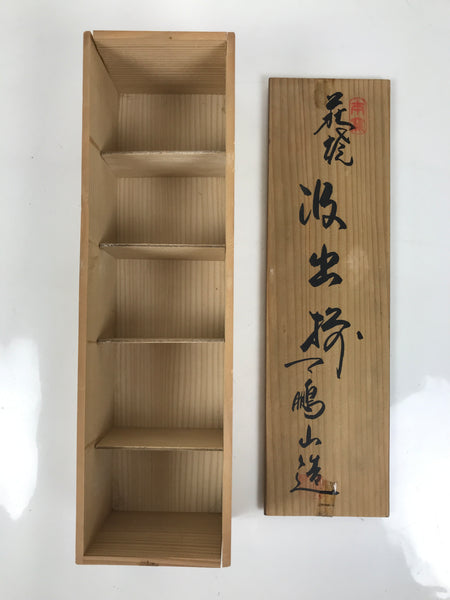 萩焼
汲出揃
一鵬山造